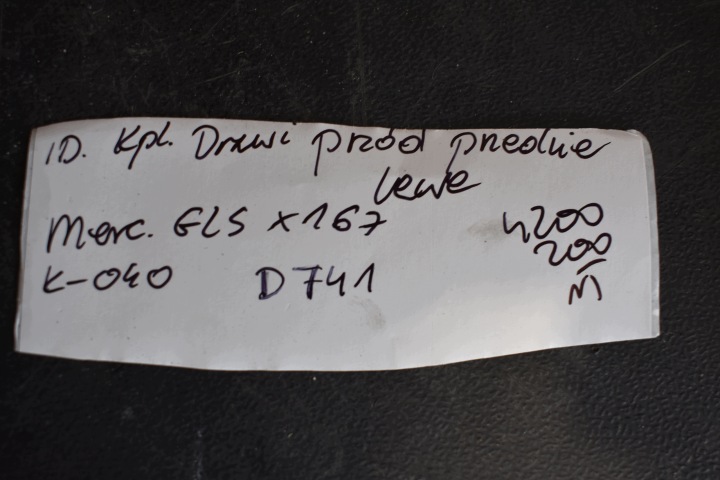 1D. Kpl. Drzwi przód przednie
lewe
Merc. GLS X167
4200
200
K-040 D741
M